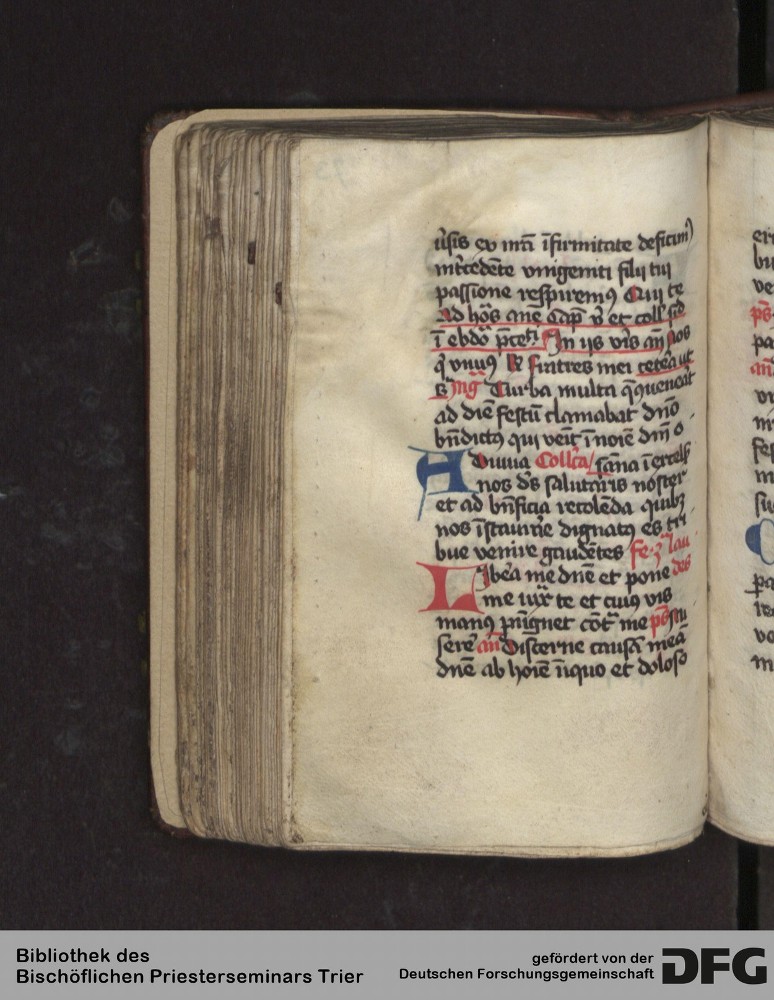 ūsis ex nrā īfirmitate deficim⁹
int̄cedēte vnigeniti filij tui
passione respirem⁹ Qui te
Ad ho᷒s ane Cap̄ v̄s et coll̄ sic̄
ī ebdo p̄ce᷒ In ijs v̄is an̄ nos
qi vnu⁹ R̄ Fratres mei cetera ut
s̄ Maḡ Turba multa q̄ 9uenerat
ad diē festū clamabat dn̄o
bn̄dict⁹ qui venit ī noīe dn̄i o
Adiuua Coll̄ca sanna ī excels̄
nos d̄s salutaris noster
et ad bn̄ficia recolēda quib⁊
nos īstaurare dignat⁹ es tri
bue venire gaudētes fe· 3ᵃ lau
Libera me dn̄e et pone des
me iuxᵃ te et cui⁹ vis
man⁹ pūgnet cōtᵃ me ps̄ Mi
serere an̄ Discerne causā meā
dn̄e ab hoīe īiquo et doloso
Bibliothek des
Bischöflichen Priesterseminars Trier
gefördert von der
Deutschen Forschungsgemeinschaft DFG